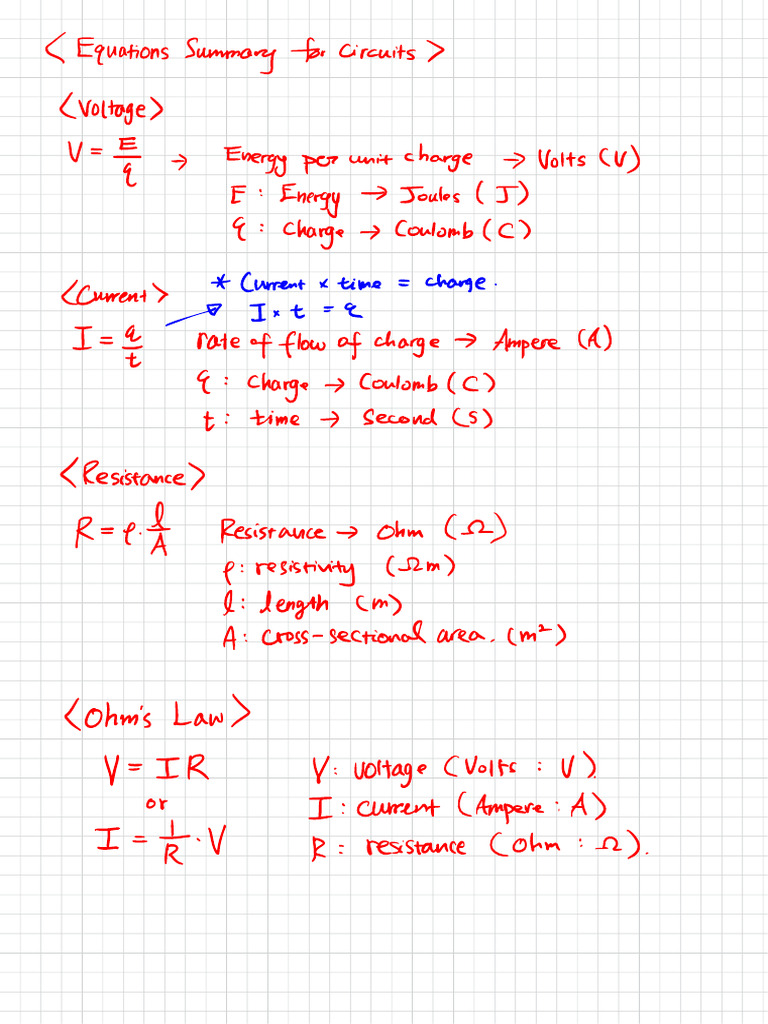 < Equations Summary for Circuits >
< Voltage >
V = E/q → Energy per unit charge → Volts (V)
E : Energy → Joules ( J )
q : Charge → Coulomb ( C )
< Current >
* Current × time = charge.
I × t = q
I = q/t rate of flow of charge → Ampere (A)
q : Charge → Coulomb ( C )
t : time → Second (s)
< Resistance >
R = ρ · l/A Resistance → Ohm (Ω)
ρ : resistivity (Ωm)
l : length (m)
A : cross-sectional area. (m²)
< Ohm's Law >
V = I R V : voltage (Volts : V).
or
I : current (Ampere : A)
I = 1/R · V R = resistance (Ohm : Ω).